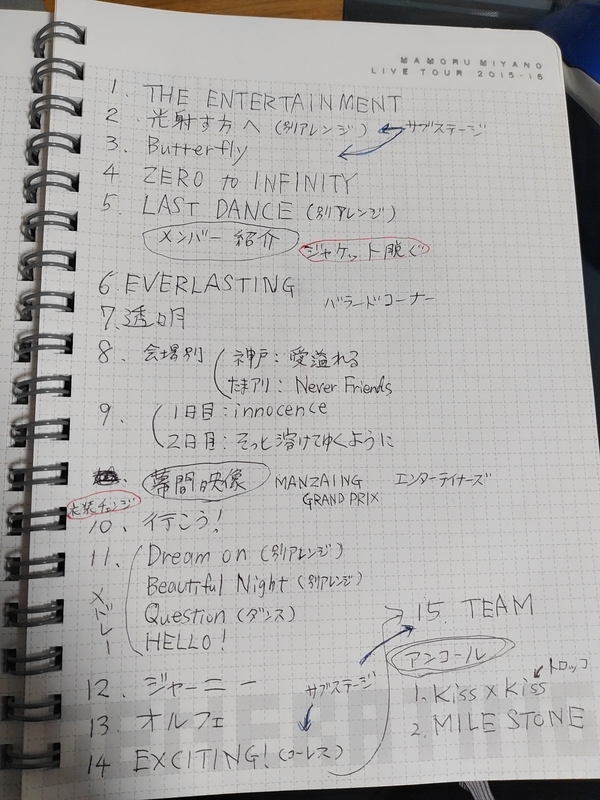 MAMORU MIYANO
LIVE TOUR 2015-16
1. THE ENTERTAINMENT
2. 光射す方へ (別アレンジ) ← サブステージ
3. Butterfly
4 ZERO to INFINITY
5. LAST DANCE (別アレンジ)
メンバー紹介 ジャケット脱ぐ
6 EVERLASTING
バラードコーナー
7. 透明
8. 会場別 神戸:愛溢れる
たまアリ: Never Friends
9. 1日目:innocence
2日目:そっと溶けてゆくように
幕間映像 MANZAING エンターテイナーズ
GRAND PRIX
衣装チェンジ
10. 行こう!
11. Dream on (別アレンジ)
メドレー
Beautiful Night (別アレンジ)
Question (ダンス)
HELLO!
12. ジャーニー
サブステージ
13. オルフェ
14 EXCITING! (コーレス)
15. TEAM
アンコール
トロッコ
1. Kiss×Kiss
2. MILESTONE